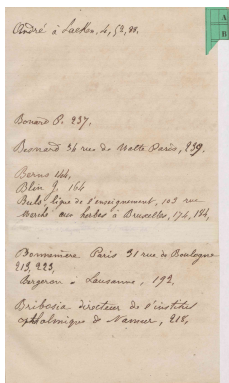 André à Laeken, 4, 52, 88.
Bonard P. 237.
Besnard 36 rue de Malte Paris, 239.
Berns 144,
Blin J. 164
Buls, ligue de l'enseignement, 103 rue
Marché aux herbes à Bruxelles, 174, 184,
Bonnemère Paris 31 rue de Boulogne
213, 223,
Bergeron à Lausanne, 192,
Bribosia directeur de l'institut
ophtalmique à Namur, 218,
A
B